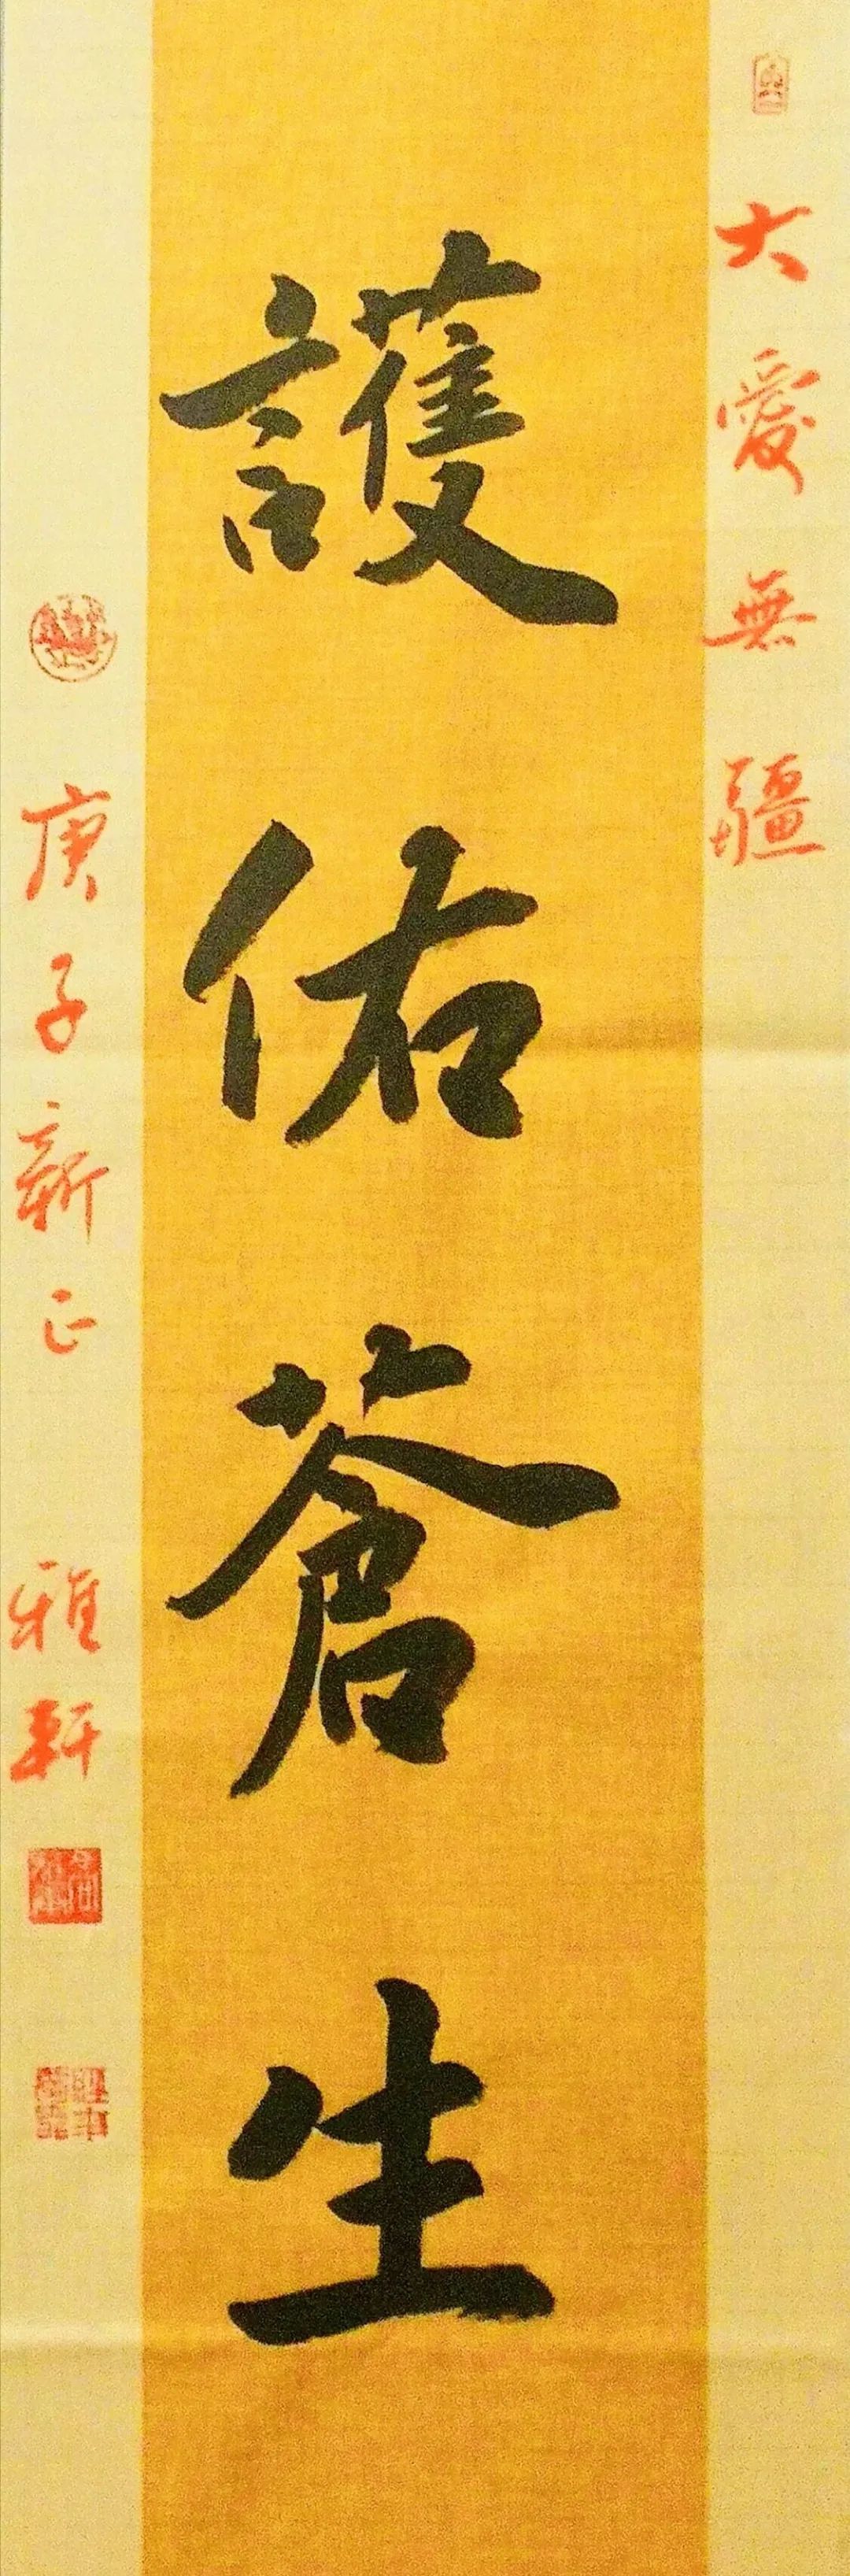 大愛無疆
護佑蒼生
庚子新正 雅軒